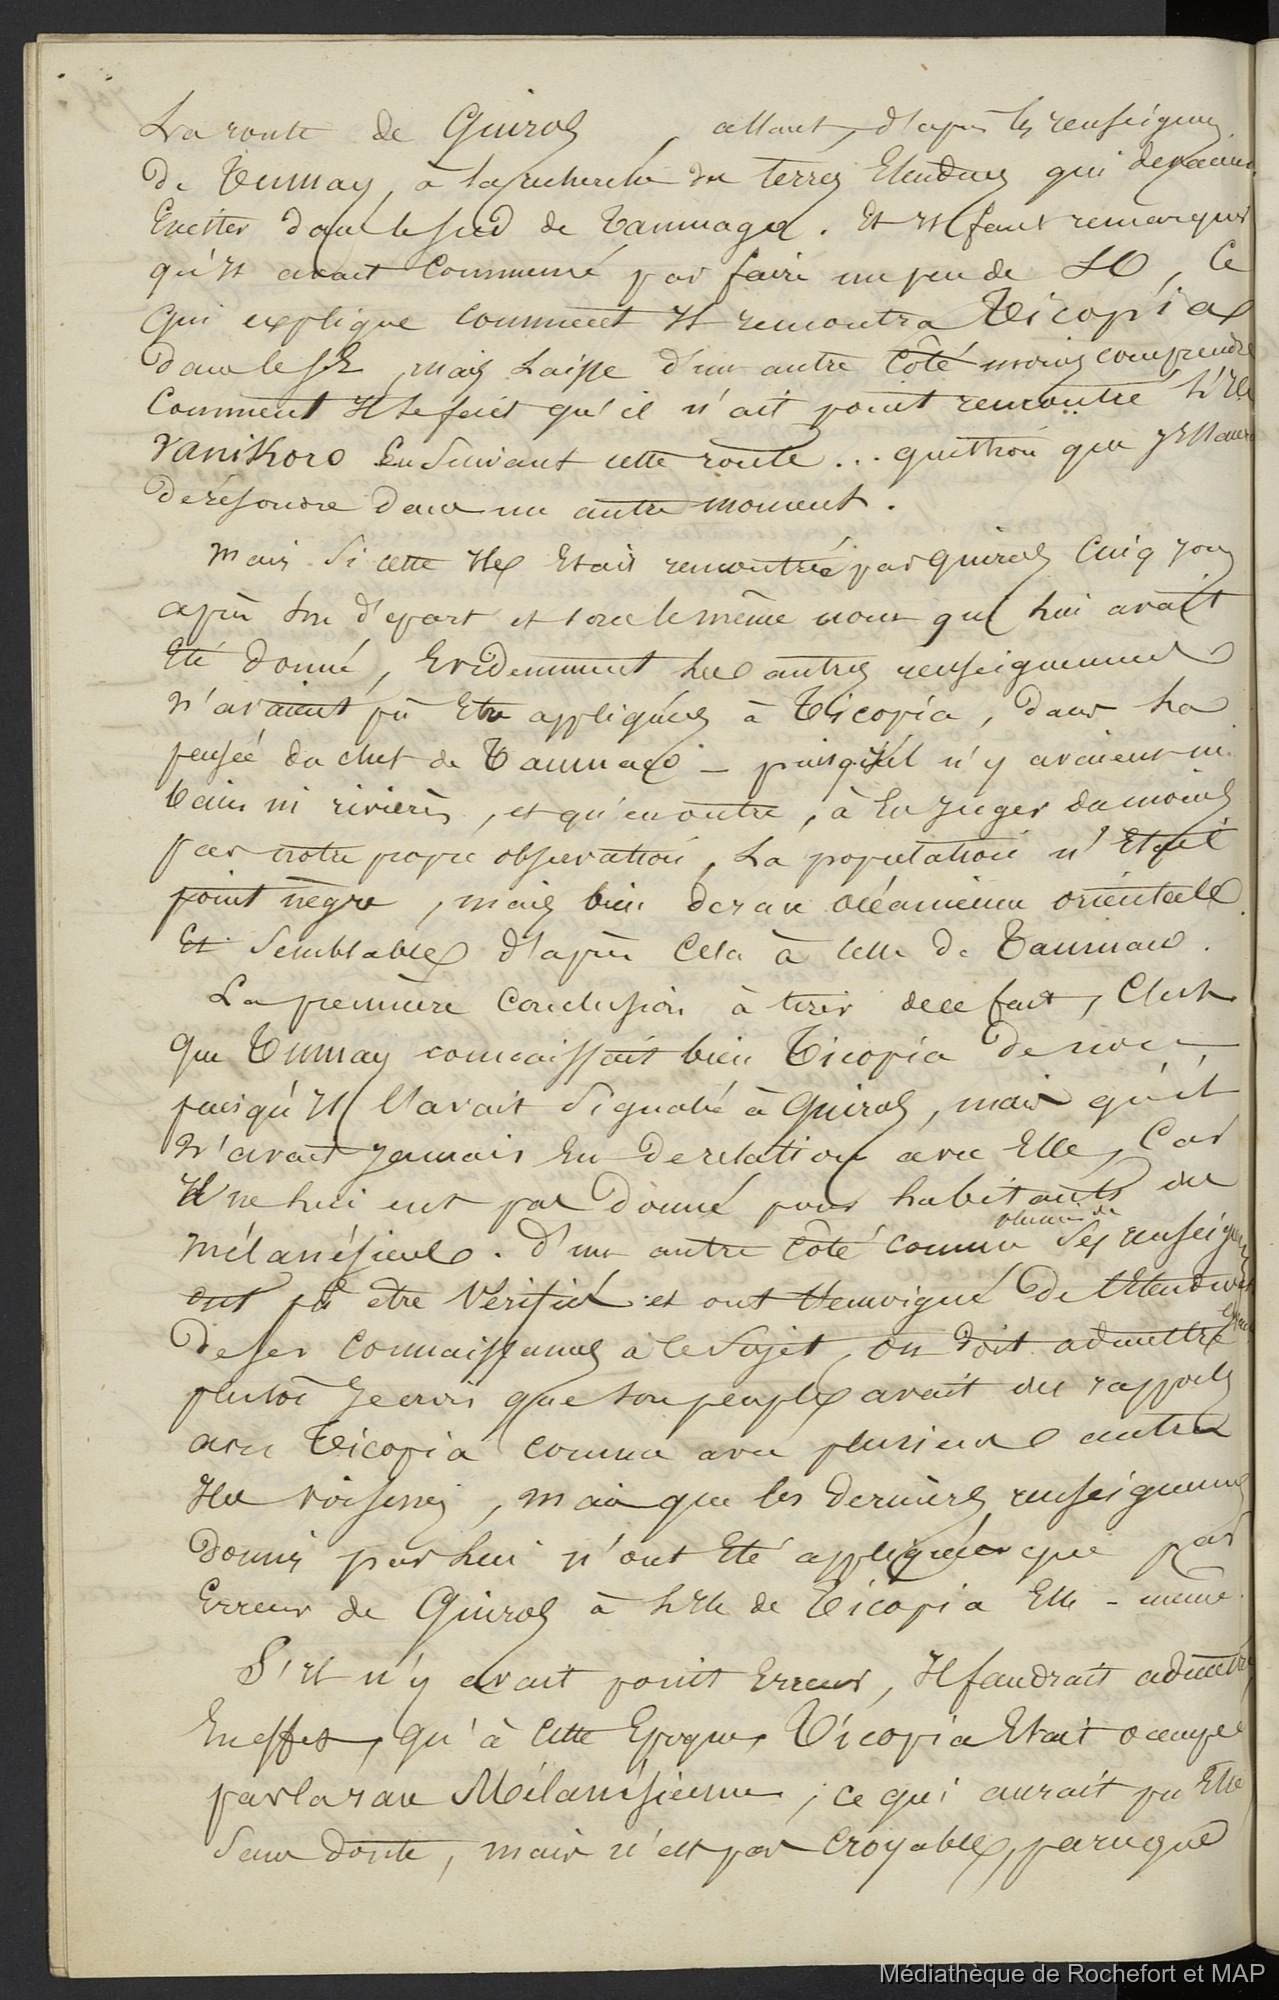 La route de Quiros, allant, d'après les renseignem
de Tumay, à la recherche des terres Etendues qui devaient
Exister dans le sud de Taumago. Et Il faut remarquer
qu'Il avait Commencé par faire un peu de SO, Ce
qui explique comment Il rencontra Ticopia
dans le SE, mais Laisse d'un autre Côté moins comprendre
Comment Il se fait qu'il n'ait point rencontré L'Ile
Vanikoro En Suivant cette route... question que J'Essaierai
de résoudre dans un autre moment.
Mais Si cette Ile Etait rencontrée par Quiros Cinq jours
après son départ et sous le même nom qui lui avait
Eté donné, Evidemment les autres renseignemens
n'avaient pû Etre appliqués à Ticopia, dans la
pensée du chef de Taumaco - puisqu'il n'y avaient ni
bains ni rivières, et qu'en outre, à En Juger du moins
par notre propre observation, La population n'Etait
point nègre, mais bien de race océanienne orientale
Et Semblable d'après Cela à celle de Taumaco.
La première Conclusion à tirer de ce fait, C'est
Que Tumay connaissait bien Ticopia de nom
puisqu'Il l'avait Signalé à Quiros, mais qu'il
N'avait Jamais Eu de relation avec Elle, Car
Il ne lui eut pas donné pour habitants des
Mélanésiens. D'un autre Côté comme plusieurs de Ses renseignem
ont pû être Vérifiés et ont témoigné de l'Etendue
de ses Connaissances à ce Sujet, on doit admettre
plutôt Je crois que son peuple avait des rapports
avec Ticopia comme avec plusieurs autres
Iles voisines, mais que les derniers renseignemens
donnés par lui n'ont Eté appliqués que par
Erreur de Quiros à L'Ile de Ticopia Elle-même.
S'Il n'y avait point Erreur, Il faudrait admettre
En effet, qu'à Cette Epoque, Ticopia Etait occupée
par la race Mélanésienne, ce qui aurait pu Etre
Sans doute, mais n'est pas Croyable, parceque
Médiathèque de Rochefort et MAP